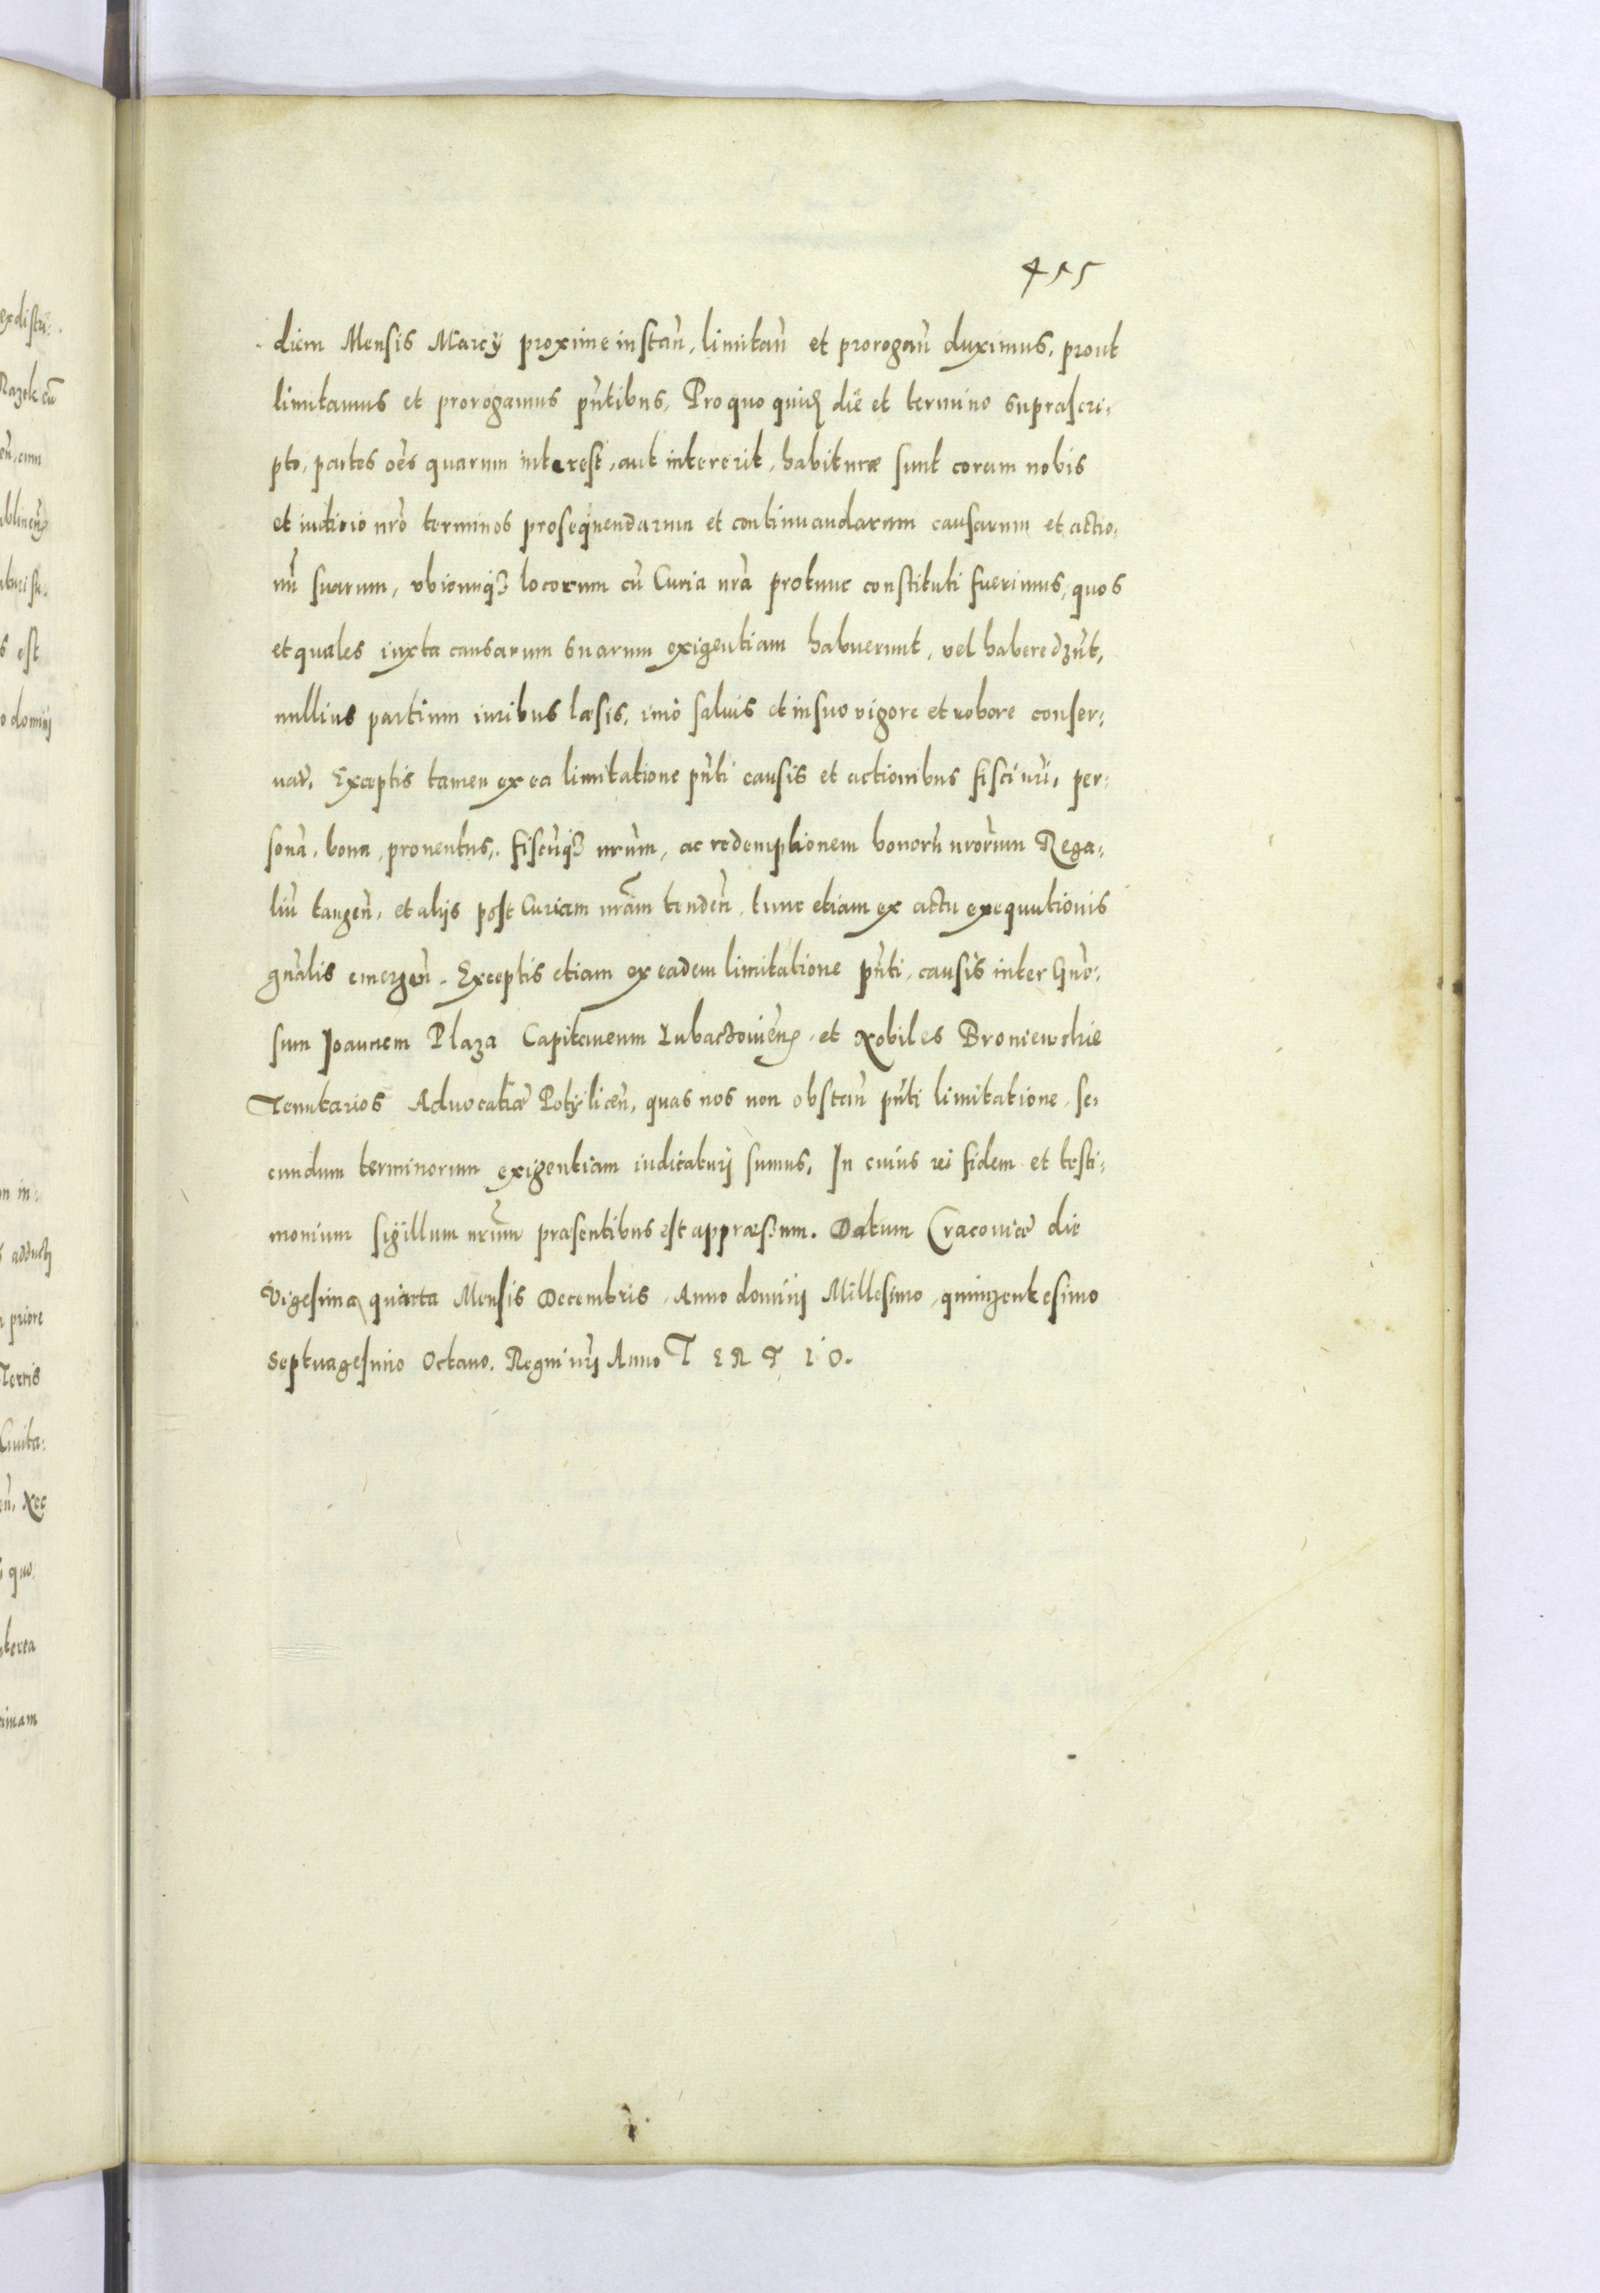 455
diem Mensis Marcÿ proxime instan̄, limitan̄ et prorogan̄ duximus, prout
limitamus et prorogamus pn̄tibus, Pro quo quid die et termino suprascri-
pto, partes oēs quarum interest, aut intererit, habituræ sunt coram nobis
et iuditio nrō terminos prosequendarum et continuandarum causarum et actio-
nū suarum, vbicunqꝫ locorum cū Curia nrā protunc constituti fuerimus, quos
et quales iuxta causarum suarum exigentiam habuerunt, vel habere dꝫūt,
nullius partium iuribus læsis, imò saluis et in suo vigore et robore conser-
uaī. Exceptis tamen ex ea limitatione pn̄ti causis et actionibus fisci nrī, per-
sonā, bona, prouentus, fiscūqꝫ nrūm, ac redemptionem bonorū nrōrum Rega-
liū tangen̄, et alijs post Curiam nrām tenden̄, tunc etiam ex actu exequutionis
gnālis emergen̄. Exceptis etiam ex eadem limitatione pn̄ti, causis inter Gn̄o-
sum Joannem Plaza Capitaneum Lubaczouien̄, et Nobiles Broniewskie
Tenutarios Aduocatiæ Potÿlicen̄, quas nos non obstan̄ pn̄ti limitatione, se-
cundum terminorum exigentiam iudicaturj sumus, In cuius rei fidem et testi-
monium sigillum nrūm præsentibus est appræssum. Datum Cracouiæ die
Vigesima quarta Mensis Decembris, Anno dominj Millesimo, quingentesimo
Septuagesimo Octauo. Regni nrj Anno TERTIO.
ex distri-
Razek cū
est
o dominj
on in-
priore
Terris
Ciuita-
Nec
quo